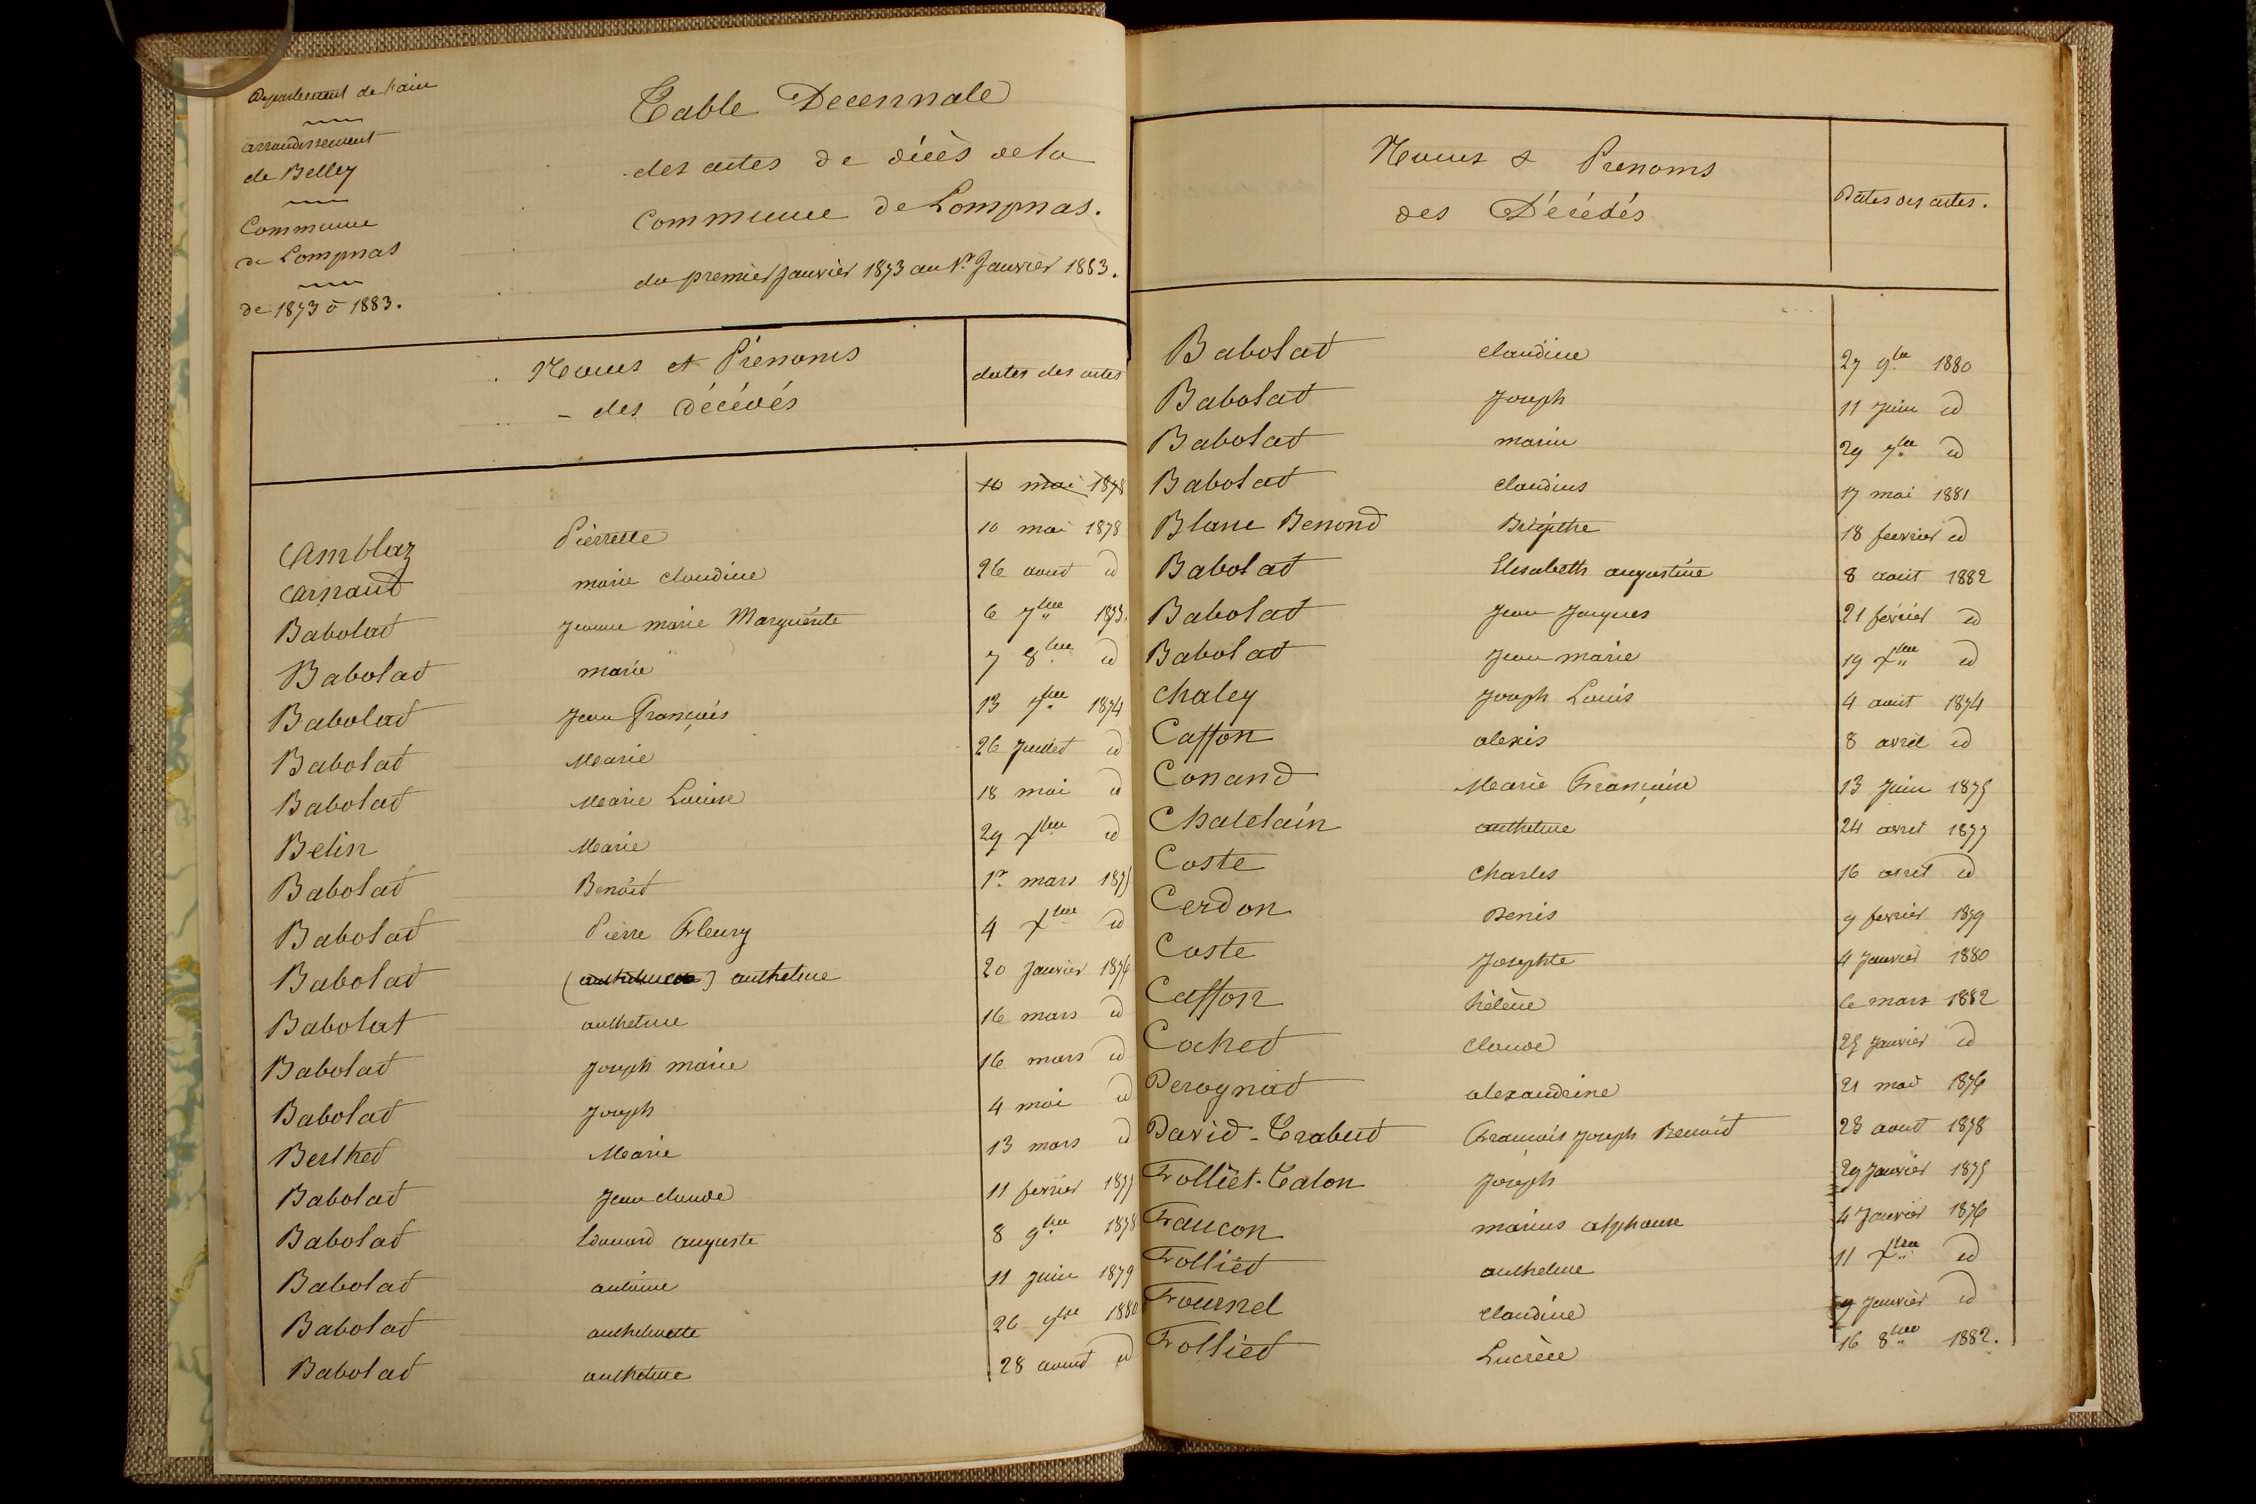 Departement de l'ain
arrondissement
de Belley
Commune
de Lompnas
de 1873 à 1883.
Table Decennale
des actes de décès de la
Commune de Lompnas.
du premier Janvier 1873 au 1er Janvier 1883.
Noms et Prénoms
des décédés
dates des actes
10 mai 1878
Amblaz Pierrette 10 mai 1878
Arnaud marie claudine 26 aout id
Babolat Jeanne marie Marguerite 6 7bre 1873.
Babolat marie 7 8bre id
Babolat Jean François 13 7bre 1874
Babolat Marie 26 Juillet id
Babolat Marie Louise 18 mai id
Belin Marie 29 xbre id
Babolat Benoit 1er mars 1875
Babolat Pierre Fleury 4 xbre id
Babolat anthelme 20 Janvier 1876
Babolat anthelme 16 mars id
Babolat Joseph marie 16 mars id
Babolat Joseph 4 mai id
Berthet Marie 13 mars id
Babolat Jean claude 11 fevrier 1877
Babolat Edouard auguste 8 9bre 1878
Babolat antoine 11 Juin 1879
Babolat anthelmette 26 9bre 1880
Babolat anthelme 28 aout id
Noms & Prenoms
des Décédés
Dates des actes.
Babolat claudine 27 9bre 1880
Babolat Joseph 11 Juin id
Babolat marie 29 7bre id
Babolat claudius 17 mai 1881
Blanc Benond Brigithe 18 fevrier id
Babolat Elisabeth augustine 8 aout 1882
Babolat Jean Jacques 21 février id
Babolat Jean marie 19 xbre id
Chaley Joseph Louis 4 aout 1874
Caffon alexis 8 avril id
Conand Marie Françoise 13 Juin 1875
Chatelain anthelme 24 avril 1877
Coste Charles 16 avril id
Cerdon Denis 9 fevrier 1879
Coste Josephte 4 Janvier 1880
Caffon hélène 6 mars 1882
Cochet Claude 25 Janvier id
Derognat alexandrine 21 mai 1876
David-Trabut François Joseph Benoit 28 aout 1878
Folliet-Talon Joseph 29 Janvier 1875
Faucon marius alphonse 4 Janvier 1876
Folliet anthelme 11 xbre id
Fournel claudine 9 Janvier id
Folliet Lucrèce 16 8bre 1882.